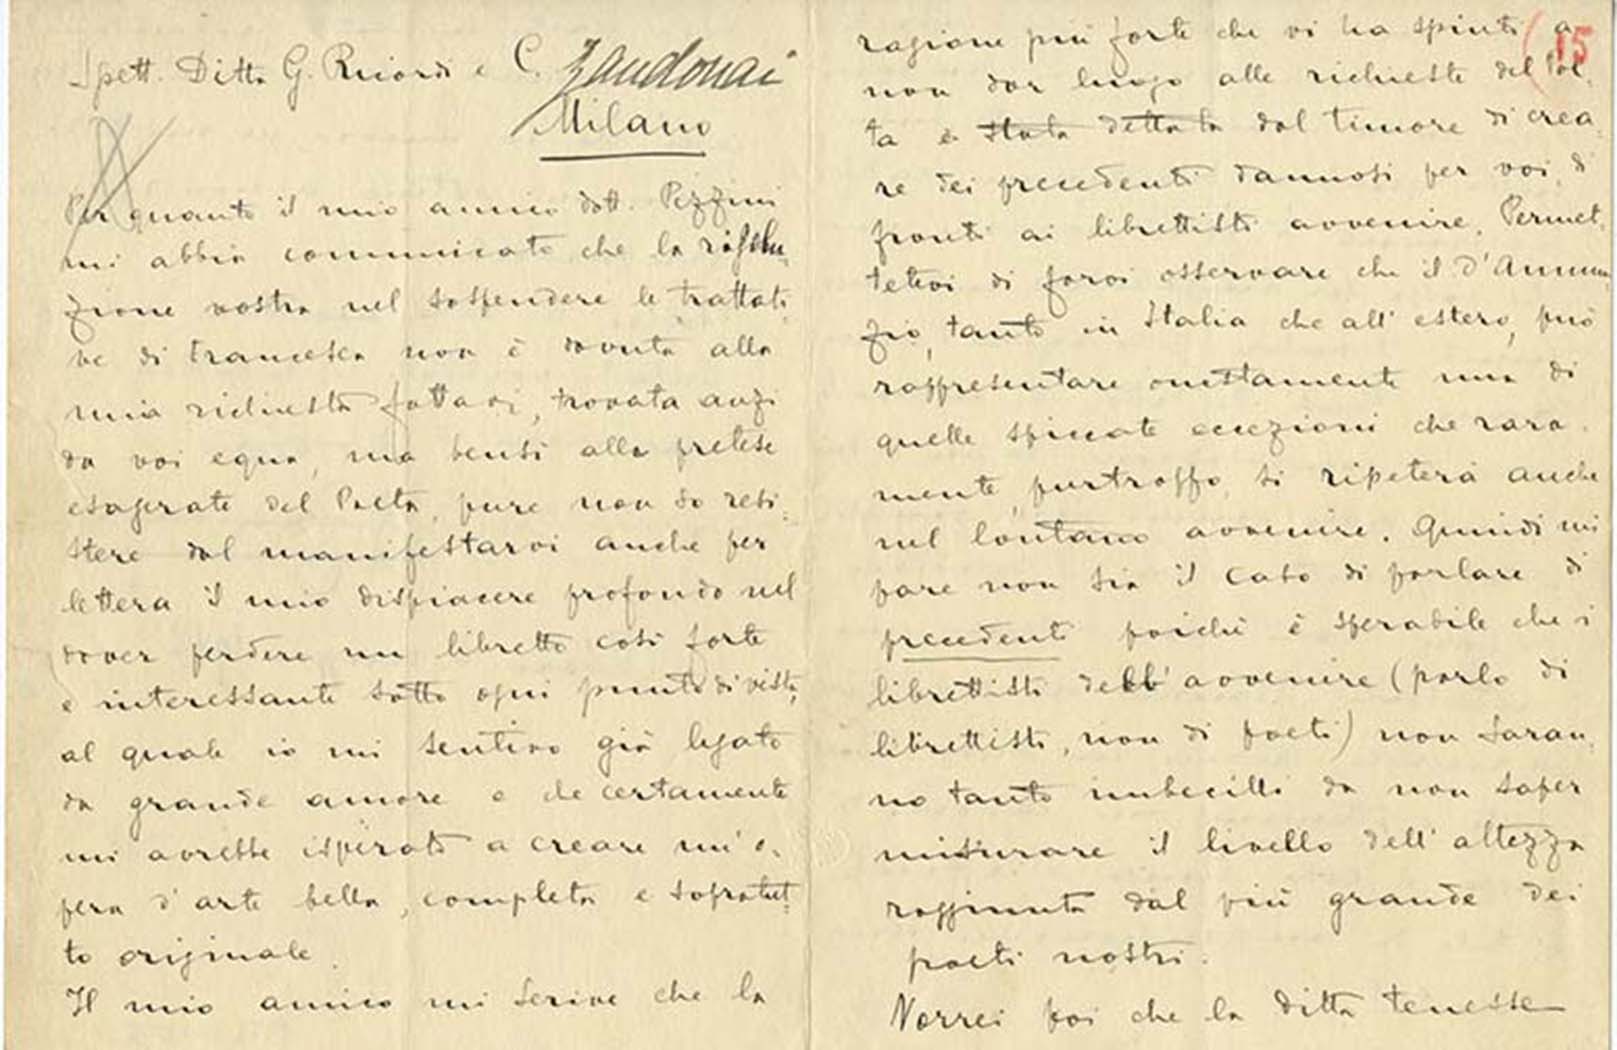 Spett. Ditta G. Ricordi e C. Zandonai
Milano
Per quanto il mio amico dott. Pizzini
mi abbia communicato che la risolu-
zione vostra nel sospendere le trattati-
ve di Francesca non è dovuta alla
mia richiesta fattavi, trovata anzi
da voi equa, ma bensì alle pretese
esagerate del Poeta, pure non so resi-
stere dal manifestarvi anche per
lettera il mio dispiacere profondo nel
dover perdere un libretto così forte
e interessante sotto ogni punto di vista,
al quale io mi sentivo già legato
da grande amore e che certamente
mi avrebbe ispirato a creare un'o-
pera d'arte bella, completa e sopratut-
to originale.
Il mio amico mi scrive che la
15
ragione più forte che vi ha spinti a
non dar luogo alle richieste del Poe-
ta è stata dettata dal timore di crea-
re dei precedenti dannosi per voi, di
fronti ai librettisti avvenire. Permet-
tetevi di farvi osservare che il D'Annun-
zio, tanto in Italia che all'estero, può
rappresentare onestamente una di
quelle spiccate eccezioni che rara-
mente, purtroppo, si ripeterà anche
nel lontano avvenire. Quindi mi
pare non sia il caso di parlare di
precedenti poichè è sperabile che i
librettisti dell'avvenire (parlo di
librettisti, non di poeti) non saran-
no tanto imbecilli da non saper
misurare il livello dell'altezza
raggiunta dal più grande dei
poeti nostri.
Vorrei poi che la ditta tenesse